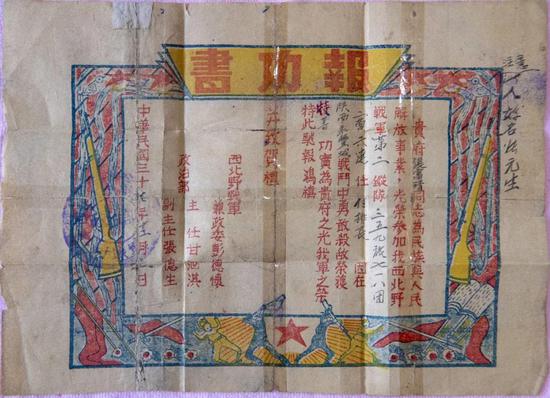 報功書
貴府張富清同志為民族與人民
解放事業,光榮參加我西北野
戰軍第二縱隊三五九旅七一八團
二营六連任付排長因在
陕西永豐城戰鬥中勇敢殺敵榮獲
特等功實為貴府之光我軍之榮
特此馳報鴻禧
并致賀禮
西北野戰軍
兼政委彭德懷
政治部
主任甘泗淇
副主任張德生
中華民國三十七年十二月 日